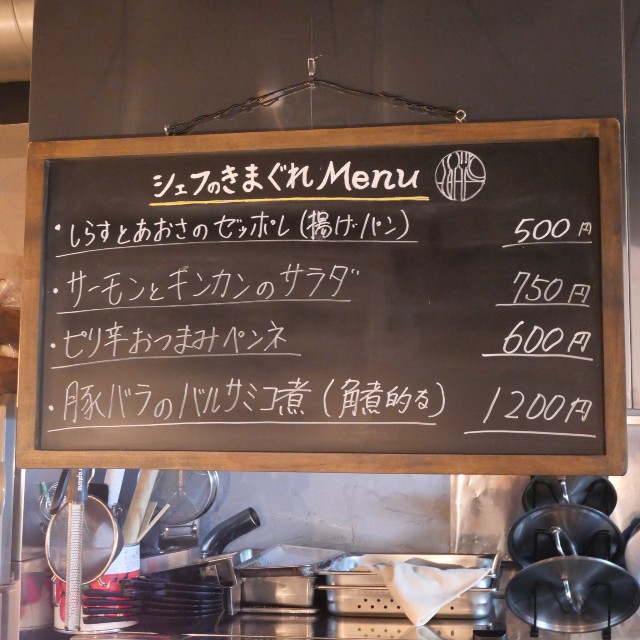 シェフのきまぐれMenu
・しらすとあおさのゼッポレ(揚げパン) 500円
・サーモンとキンカンのサラダ 750円
・ピリ辛おつまみペンネ 600円
・豚バラのバルサミコ煮(角煮的な) 1200円